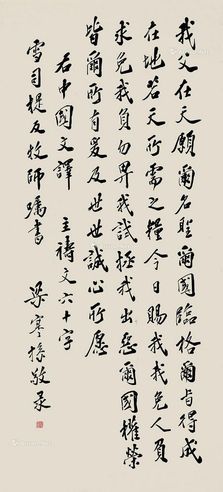 我父在天願爾名聖爾國臨格爾旨得成
在地若天所需之糧今日賜我我免人負
求免我負勿畀我試拯我出惡爾國權榮
皆爾所有爰及世世誠心所愿
右中國文譯 主禱文六十字
雪司提反牧師囑書 梁寒操敬录